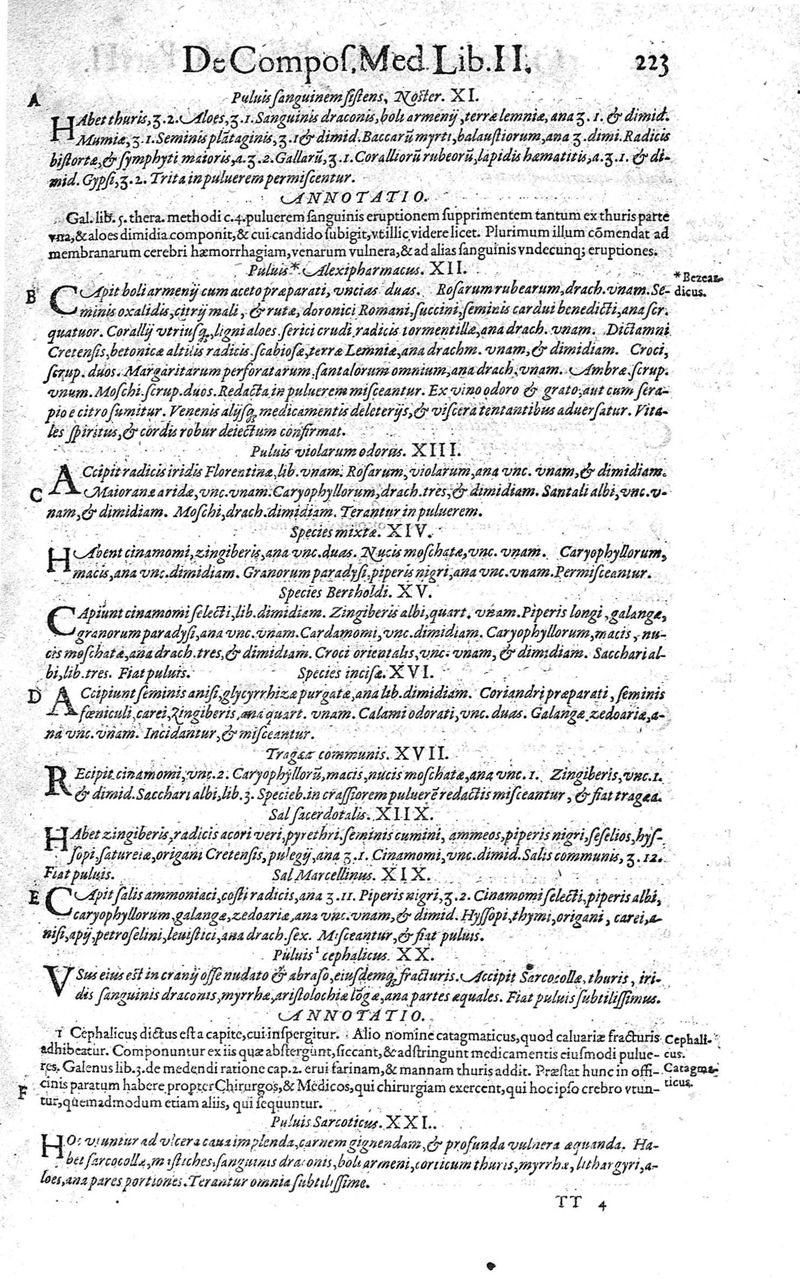 De Compoſ. Med. Lib. II. 223
A
Puluis ſanguinem ſiſtens, Noſter. XI.
HAbet thuris, ʒ. 2. Aloes, ʒ. 1. Sanguinis draconis, boli armenij, terræ lemniæ, ana ʒ. 1. & dimid.
Mumiæ, ʒ. 1. Seminis plãtaginis, ʒ. 1 & dimid. Baccarũ myrti, balauſtiorum, ana ʒ. dimi. Radicis
biſtortæ, & ſymphyti maioris, a. ʒ. 2. Gallarũ, ʒ. 1. Coralliorũ rubeorũ, lapidis hæmatitis, a. ʒ. 1. & di-
mid. Gypſi, ʒ. 2. Trita in puluerem permiſcentur.
ANNOTATIO.
Gal. lib. 5. thera. methodi c. 4. puluerem ſanguinis eruptionem ſupprimentem tantum ex thuris parte
vna, & aloes dimidia componit, & cui candido ſubigit, vt illic videre licet. Plurimum illum cõmendat ad
membranarum cerebri hæmorrhagiam, venarum vulnera, & ad alias ſanguinis vndecunq; eruptiones.
Puluis* Alexipharmacus. XII.
*Bezear-
dicus.
B
CApit boli armenij cum aceto præparati, vncias duas. Roſarum rubearum, drach. vnam. Se-
minis oxalidis, citrij mali, & rutæ, doronici Romani, ſuccini, ſeminis cardui benedicti, ana ſcr.
quatuor. Corallij vtriuſq;, ligni aloes, ſerici crudi, radicis tormentillæ, ana drach. vnam. Dictamni
Cretenſis, betonicæ altilis radicis, ſcabioſæ, terræ Lemniæ, ana drachm. vnam, & dimidiam. Croci,
ſcrup. duos. Margaritarum perforatarum, ſantalorum omnium, ana drach. vnam. Ambræ, ſcrup.
vnum. Moſchi, ſcrup. duos. Redacta in puluerem miſceantur. Ex vino odoro & grato, aut cum ſera-
pio e citro ſumitur. Venenis alijſq; medicamentis deleterijs, & viſcera tentantibus aduerſatur. Vita-
les ſpiritus, & cordis robur deiectum confirmat.
Puluis violarum odorus. XIII.
ACcipit radicis iridis Florentinæ, lib. vnam. Roſarum, violarum, ana vnc. vnam, & dimidiam.
C
Maioranæ aridæ, vnc. vnam. Caryophyllorum, drach. tres, & dimidiam. Santali albi, vnc. v-
nam, & dimidiam. Moſchi, drach. dimidiam. Terantur in puluerem.
Species mixtæ. XIV.
HAbent cinamomi, zingiberis, ana vnc. duas. Nucis moſchatæ, vnc. vnam. Caryophyllorum,
macis, ana vnc. dimidiam. Granorum paradyſi, piperis nigri, ana vnc. vnam. Permiſceantur.
Species Bertholdi. XV.
CApiunt cinamomi ſelecti, lib. dimidiam. Zingiberis albi, quart. vnam. Piperis longi, galangæ,
granorum paradyſi, ana vnc. vnam. Cardamomi, vnc. dimidiam. Caryophyllorum, macis, nu-
cis moſchatæ, ana drach. tres, & dimidiam. Croci orientalis, vnc. vnam, & dimidiam. Sacchari al-
bi, lib. tres. Fiat puluis. Species inciſæ. XVI.
D
ACcipiunt ſeminis aniſi, glycyrrhizæ purgatæ, ana lib. dimidiam. Coriandri præparati, ſeminis
fœniculi, carei, zingiberis, ana quart. vnam. Calami odorati, vnc. duas. Galangæ, zedoariæ, a-
na vnc. vnam. Incidantur, & miſceantur.
Tragææ communis. XVII.
REcipit cinamomi, vnc. 2. Caryophyllorũ, macis, nucis moſchatæ, ana vnc. 1. Zingiberis, vnc. 1.
& dimid. Sacchari albi, lib. 3. Specieb. in craſſiorem puluerẽ redactis miſceantur, & fiat tragæa.
Sal ſacerdotalis. XIIX.
HAbet zingiberis, radicis acori veri, pyrethri, ſeminis cumini, ammeos, piperis nigri, ſeſelios, hyſ-
ſopi, ſatureiæ, origani Cretenſis, pulegij, ana ʒ. 1. Cinamomi, vnc. dimid. Salis communis, ʒ. 12.
Fiat puluis. Sal Marcellinus. XIX.
E
CApit ſalis ammoniaci, coſti radicis, ana ʒ. 11. Piperis nigri, ʒ. 2. Cinamomi ſelecti, piperis albi,
caryophyllorum, galangæ, zedoariæ, ana vnc. vnam, & dimid. Hyſſopi, thymi, origani, carei, a-
niſi, apij, petroſelini, leuiſtici, ana drach. ſex. Miſceantur, & fiat puluis.
Puluis¹ cephalicus. XX.
VSus eius eſt in cranij oſſe nudato & abraſo, eiuſdemq; fracturis. Accipit Sarcocollæ, thuris, iri-
dis ſanguinis draconis, myrrhæ, ariſtolochiæ lõgæ, ana partes æquales. Fiat puluis ſubtiliſſimus.
ANNOTATIO.
1 Cephalicus dictus eſt a capite, cui inſpergitur. Alio nomine catagmaticus, quod caluariæ fracturis
Cephali-
cus.
adhibeatur. Componuntur ex iis quæ abſtergũt, ſiccant, & adſtringunt medicamentis eiuſmodi pulue-
res. Galenus lib. 3. de medendi ratione cap. 2. erui farinam, & mannam thuris addit. Præſtat hunc in offi-
Catagma-
ticus.
F
cinis paratum habere propter Chirurgos, & Medicos, qui chirurgiam exercent, qui hoc ipſo crebro vtun-
tur, quemadmodum etiam aliis, qui ſequuntur.
Puluis Sarcoticus. XXI.
HOc vtuntur ad vlcera caua implenda, carnem gignendam, & profunda vulnera æquanda. Ha-
bet ſarcocollæ, maſtiches, ſanguinis draconis, boli armeni, corticum thuris, myrrhæ, lithargyri, a-
loes, ana pares portiones. Terantur omnia ſubtiliſſime.
TT 4